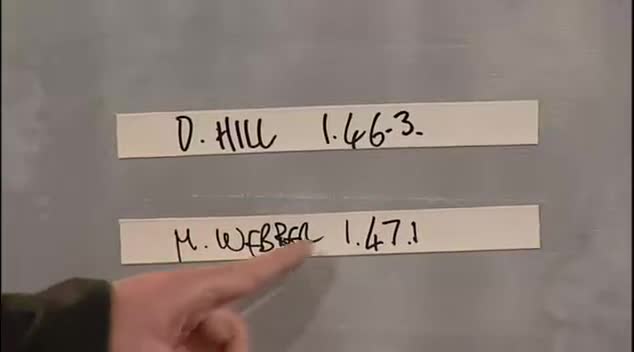 D. HILL 1.46.3.
M. WEBBER 1.47.1